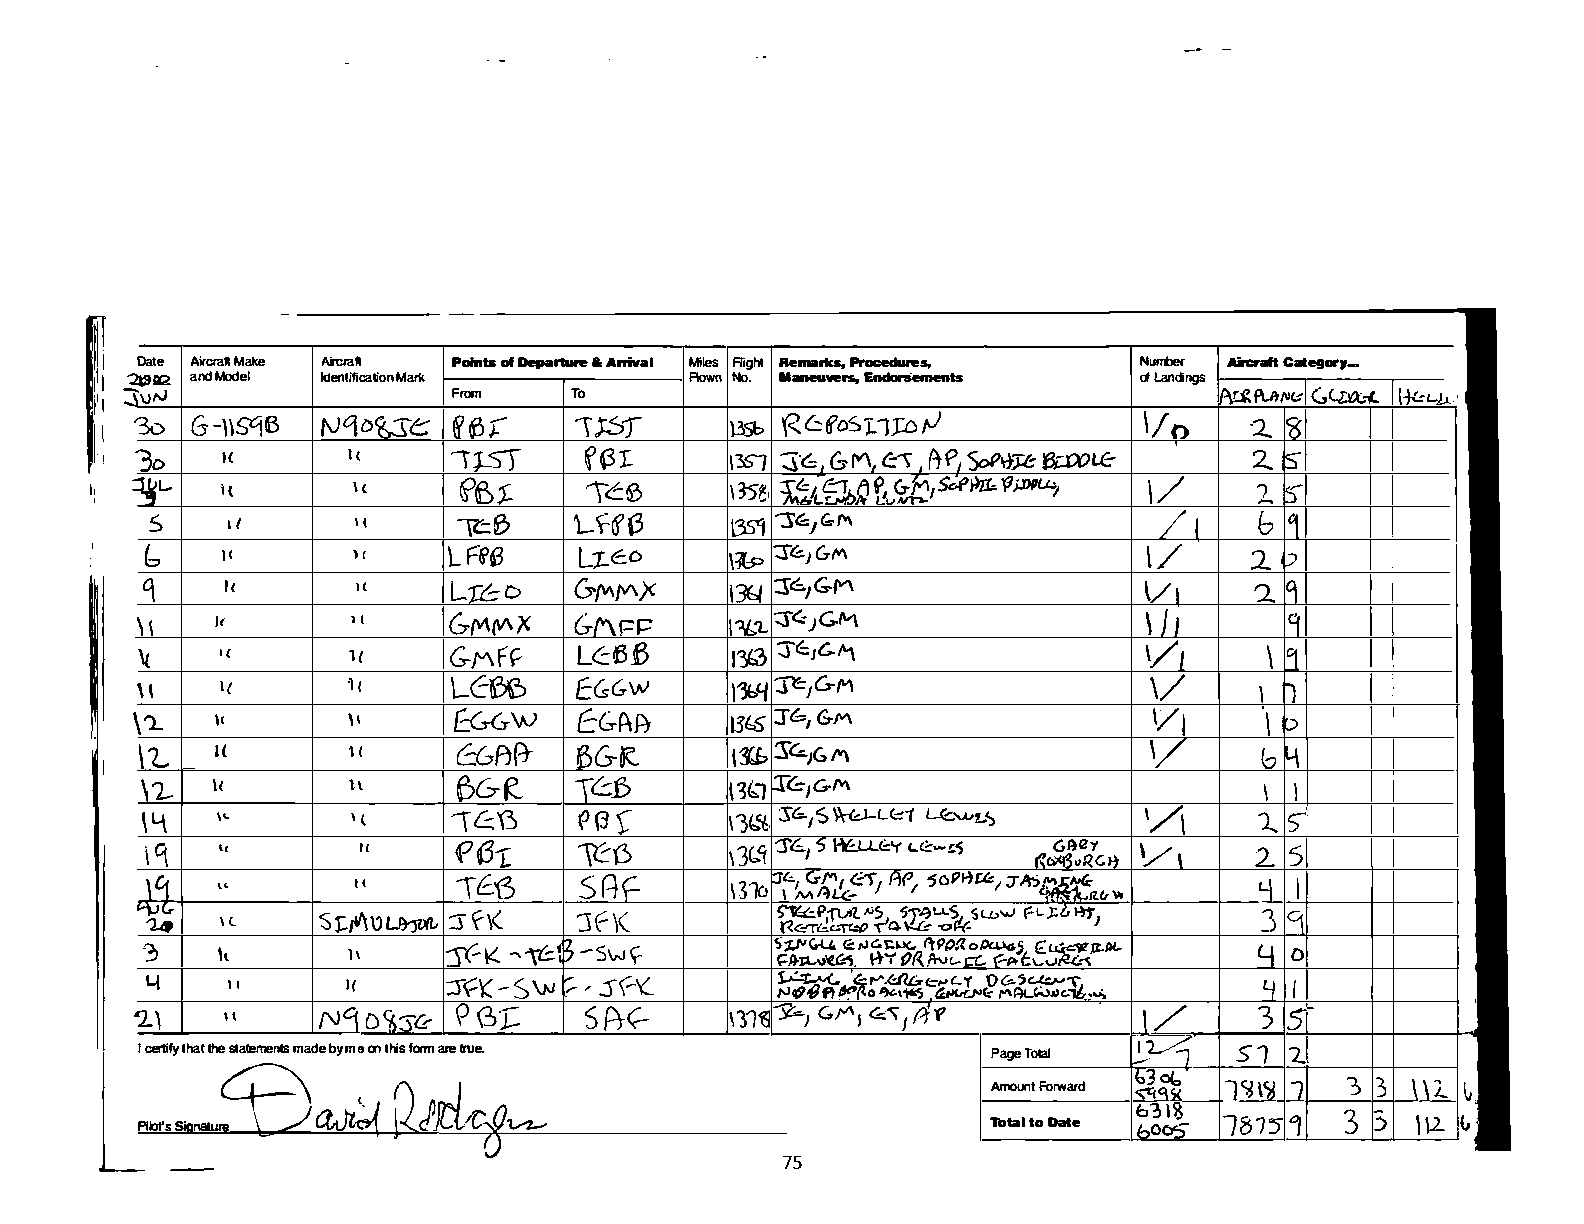 Date Aircraft Make Aircraft Points of Departure & Arrival Miles Flight Remarks, Procedures, Number Aircraft Category...
2002 and Model Identification Mark Flown No. Maneuvers, Endorsements of Landings
JUN From To AIRPLANE GLIDER HELI
30 G-1159B N908JE PBI TIST 1356 REPOSITION 1/0 2 8
30 " " TIST PBI 1357 JE, GM, ET, AP, SOPHIE BIDDLE 2 5
JUL
3 " " PBI TEB 1358 JE, ET, AP, GM, SOPHIE BIDDLE, 1/ 2 5
MELINDA LUNTZ
5 " " TEB LFPB 1359 JE, GM /1 6 9
6 " " LFPB LIEO 1360 JE, GM 1/ 2 0
9 " " LIEO GMMX 1361 JE, GM 1/1 2 9
11 " " GMMX GMFF 1362 JE, GM 1/1 9
" " " GMFF LEBB 1363 JE, GM 1/1 1 9
11 " " LEBB EGGW 1364 JE, GM 1/ 1 7
12 " " EGGW EGAA 1365 JE, GM 1/1 1 0
12 " " EGAA BGR 1366 JE, GM 1/ 6 4
12 " " BGR TEB 1367 JE, GM 1 1
14 " " TEB PBI 1368 JE, SHELLEY LEWIS 1/1 2 5
19 " " PBI TEB 1369 JE, SHELLEY LEWIS GARY ROXBURGH 1/1 2 5
19 " " TEB SAF 1370 JE, GM, ET, AP, SOPHIE, JASMINE 4 1
1 MALE
AUG
" SIMULATOR JFK JFK STEEP TURNS, STALLS, SLOW FLIGHT, 3 9
REJECTED TAKE OFF
3 " " JFK-TEB-SWF SINGLE ENGINE APPROACHES, ELECTRICAL 4 0
FAILURES, HYDRAULIC FAILURES
4 " " JFK-SWF-JFK EMERGENCY DESCENT, 4 1
APPROACHES, ENGINE MALFUNCTIONS
21 " N908JE PBI SAF 1378 JE, GM, ET, AP 1/ 3 5
I certify that the statements made by me on this form are true. Page Total 12/7 57 2
Amount Forward 6306 5998 7818 7 3 3 112 6
Pilot's Signature David Rodgers Total to Date 6318 6005 7875 9 3 3 112 6
75